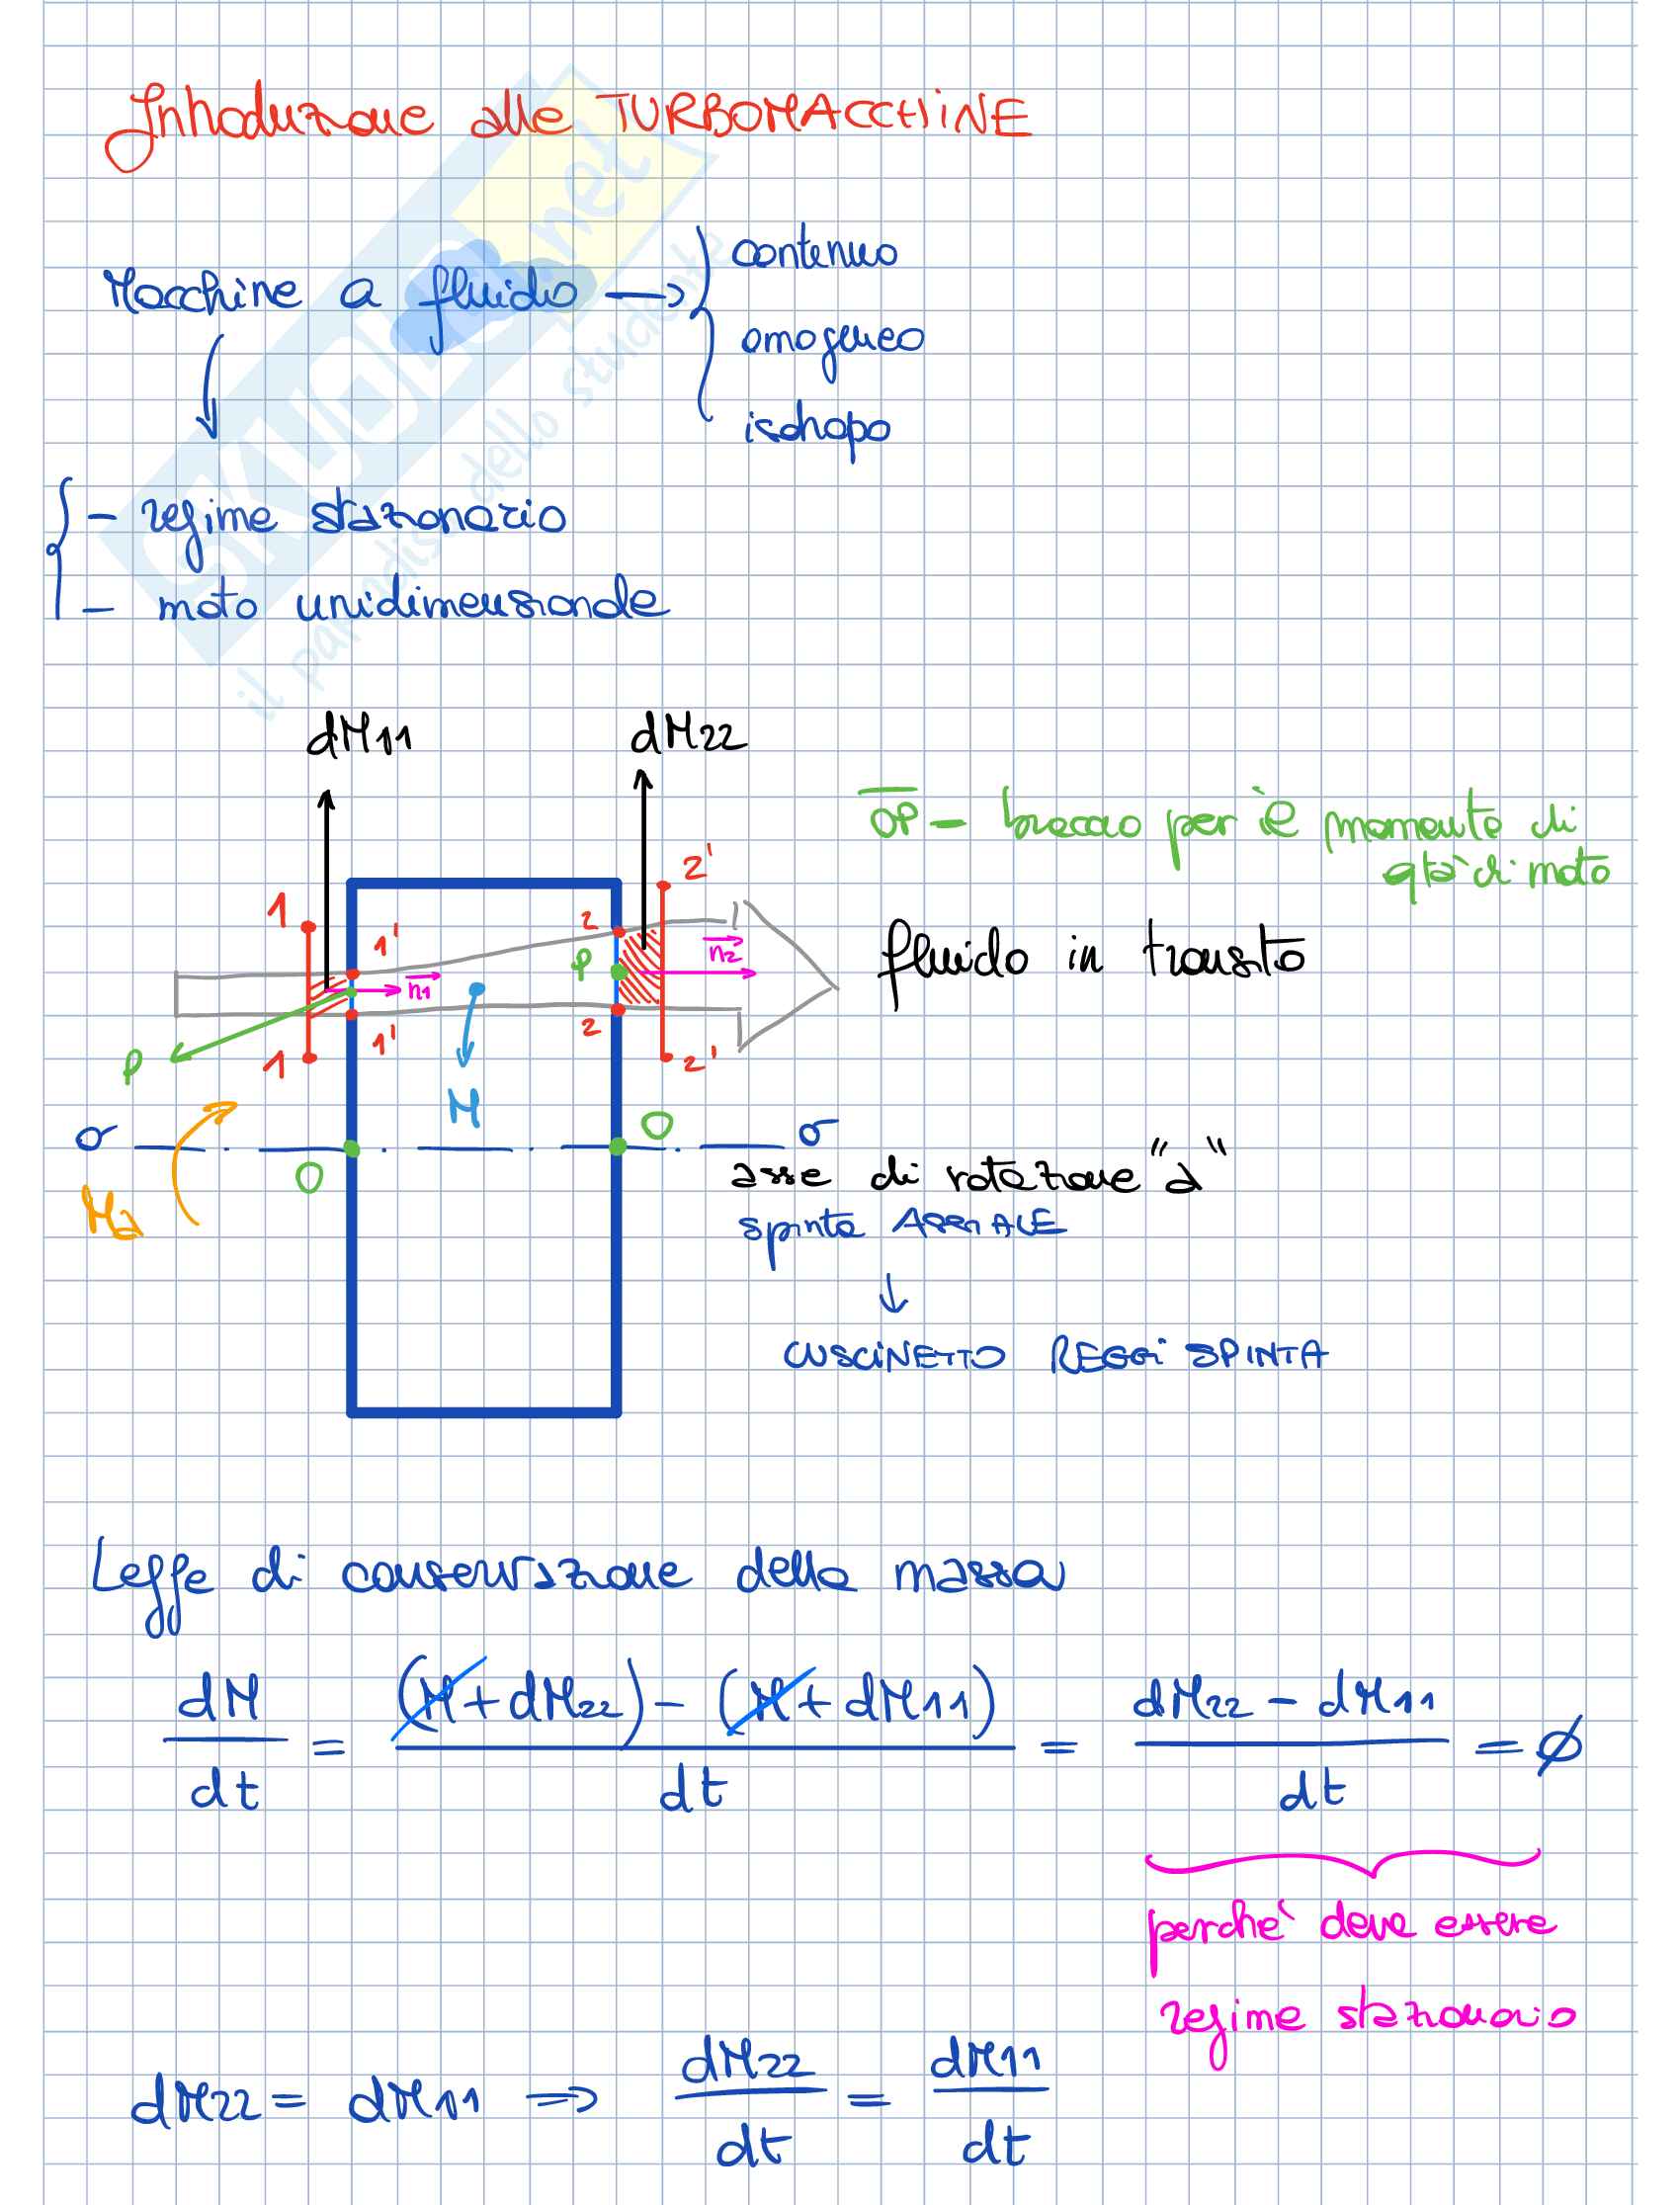 Introduzione alle TURBOMACCHINE
Macchine a fluido → continuo
omogeneo
isotropo
- regime stazionario
- moto unidimensionale
SKUOLA.net
il paradiso dello studente
dM11
dM22
OP - braccio per il momento di
qtà di moto
1
1'
2
2'
P
n1
n2
fluido in transito
1
1'
2
2'
P
M
σ
O
O
σ
Ma
asse di rotazione "a"
spinta ASSIALE
↓
CUSCINETTO REGGI SPINTA
Legge di conservazione della massa
dM/dt = (M + dM22) - (M + dM11) / dt = dM22 - dM11 / dt = ∅
perchè deve essere
regime stazionario
dM22 = dM11 => dM22/dt = dM11/dt